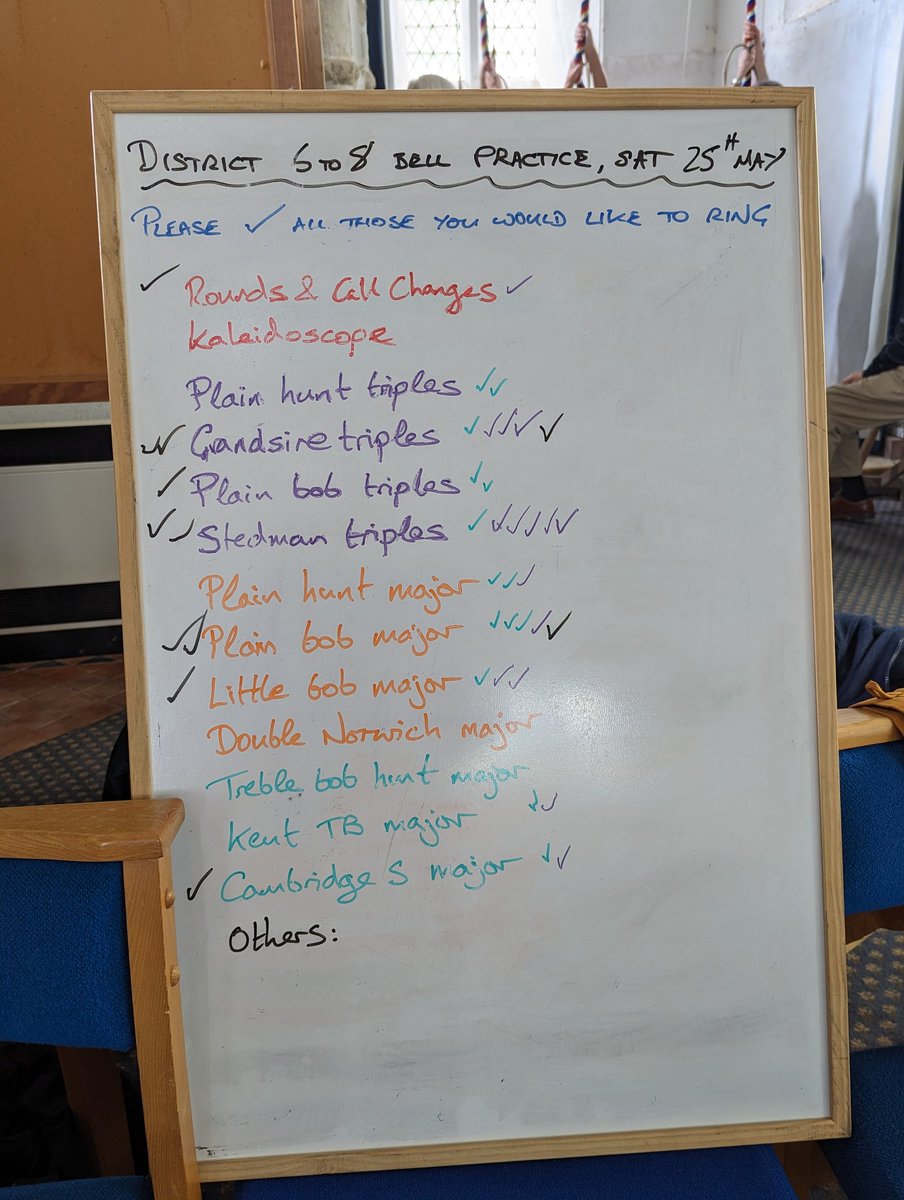 DISTRICT 6 TO 8 BELL PRACTICE, SAT 25TH MAY
PLEASE ✓ ALL THOSE YOU WOULD LIKE TO RING
✓ Rounds & Call Changes ✓
Kaleidoscope
Plain hunt triples ✓✓
✓✓ Grandsire triples ✓✓✓✓✓
✓ Plain bob triples ✓✓
✓✓ Stedman triples ✓✓✓✓✓
Plain hunt major ✓✓✓
✓✓ Plain bob major ✓✓✓✓✓
✓ Little bob major ✓✓✓
Double Norwich major
Treble bob hunt major
Kent TB major ✓✓
✓ Cambridge S major ✓✓
Others: